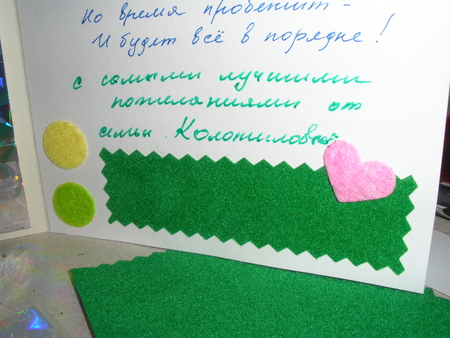 Но время пробежит -
И будет всё в порядке!
с самыми лучшими
пожеланиями от
семьи